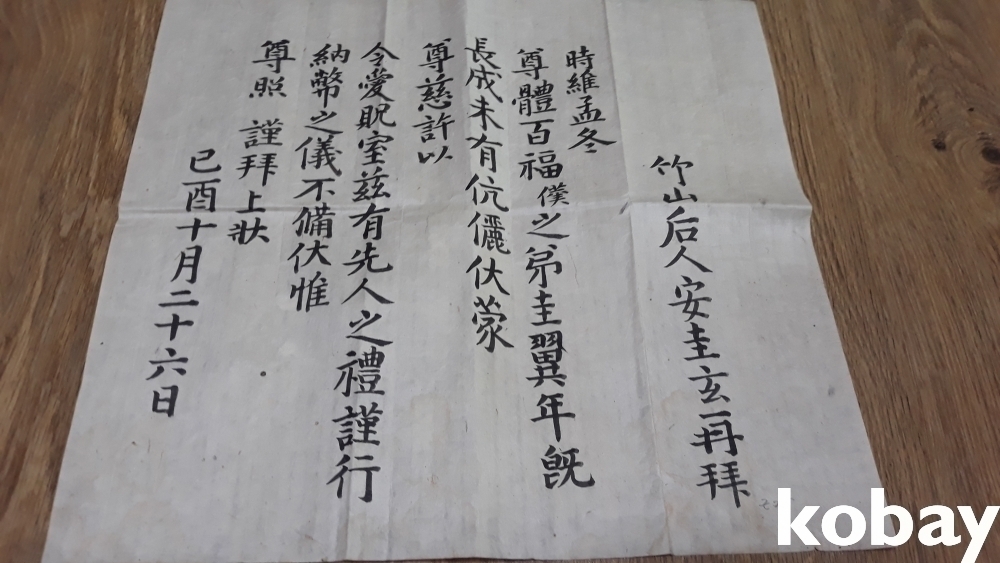 竹山后人安圭玄再拜
時維孟冬
尊體百福僕之弟圭翼年既
長成未有伉儷伏蒙
尊慈許以
令愛貺室茲有先人之禮謹行
納幣之儀不備伏惟
尊照 謹拜上狀
己酉十月二十六日
kobay